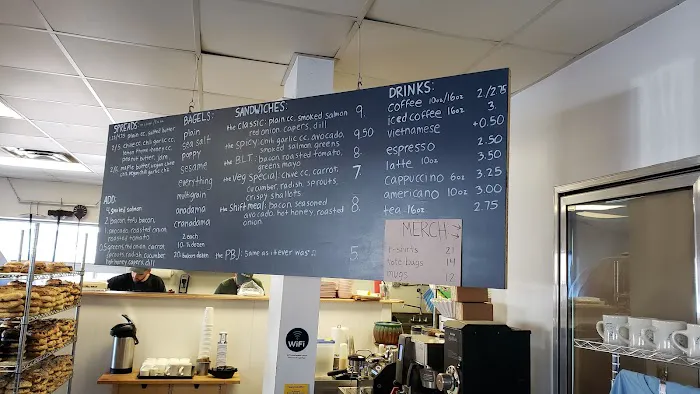 SPREADS:
1.50 plain cc, salted butter
lemon thyme honey cc,
peanut butter, jam
ADD:
4 smoked salmon
2 bacon, tofu bacon,
1 avocado, roasted onion,
roasted tomato
0.5 greens, red onion, carrot
sprouts, radish, cucumber
hot honey, roasted
onion
BAGELS:
plain
sea salt
poppy
sesame
everything
multigrain
anadama
cranadama
2 each
10- ½ dozen
20. bacon dozen
SANDWICHES:
the classic: plain cc, smoked salmon 9.
red onion, capers, dill
the spicy: chili garlic cc, avocado, 9.50
smoked salmon, greens
the B.L.T.: bacon, roasted tomato, 8.
greens, mayo
the veg special: chive cc, carrot, 7
cucumber, radish, sprouts,
crispy shallots
the shiftmeal: bacon, seasoned 8.
avocado, hot honey, roasted
onion
the PBJ: same as it ever was 5.
DRINKS:
coffee 10oz/16oz 2./2.75
iced coffee 16oz 3.
vietnamese +0.50
espresso 2.50
latte 10oz 3.50
cappuccino 6oz 3.25
americano 10oz 3.00
tea 16oz 2.75
MERCH
t-shirts 21
tote bags 14
mugs 12
WiFi